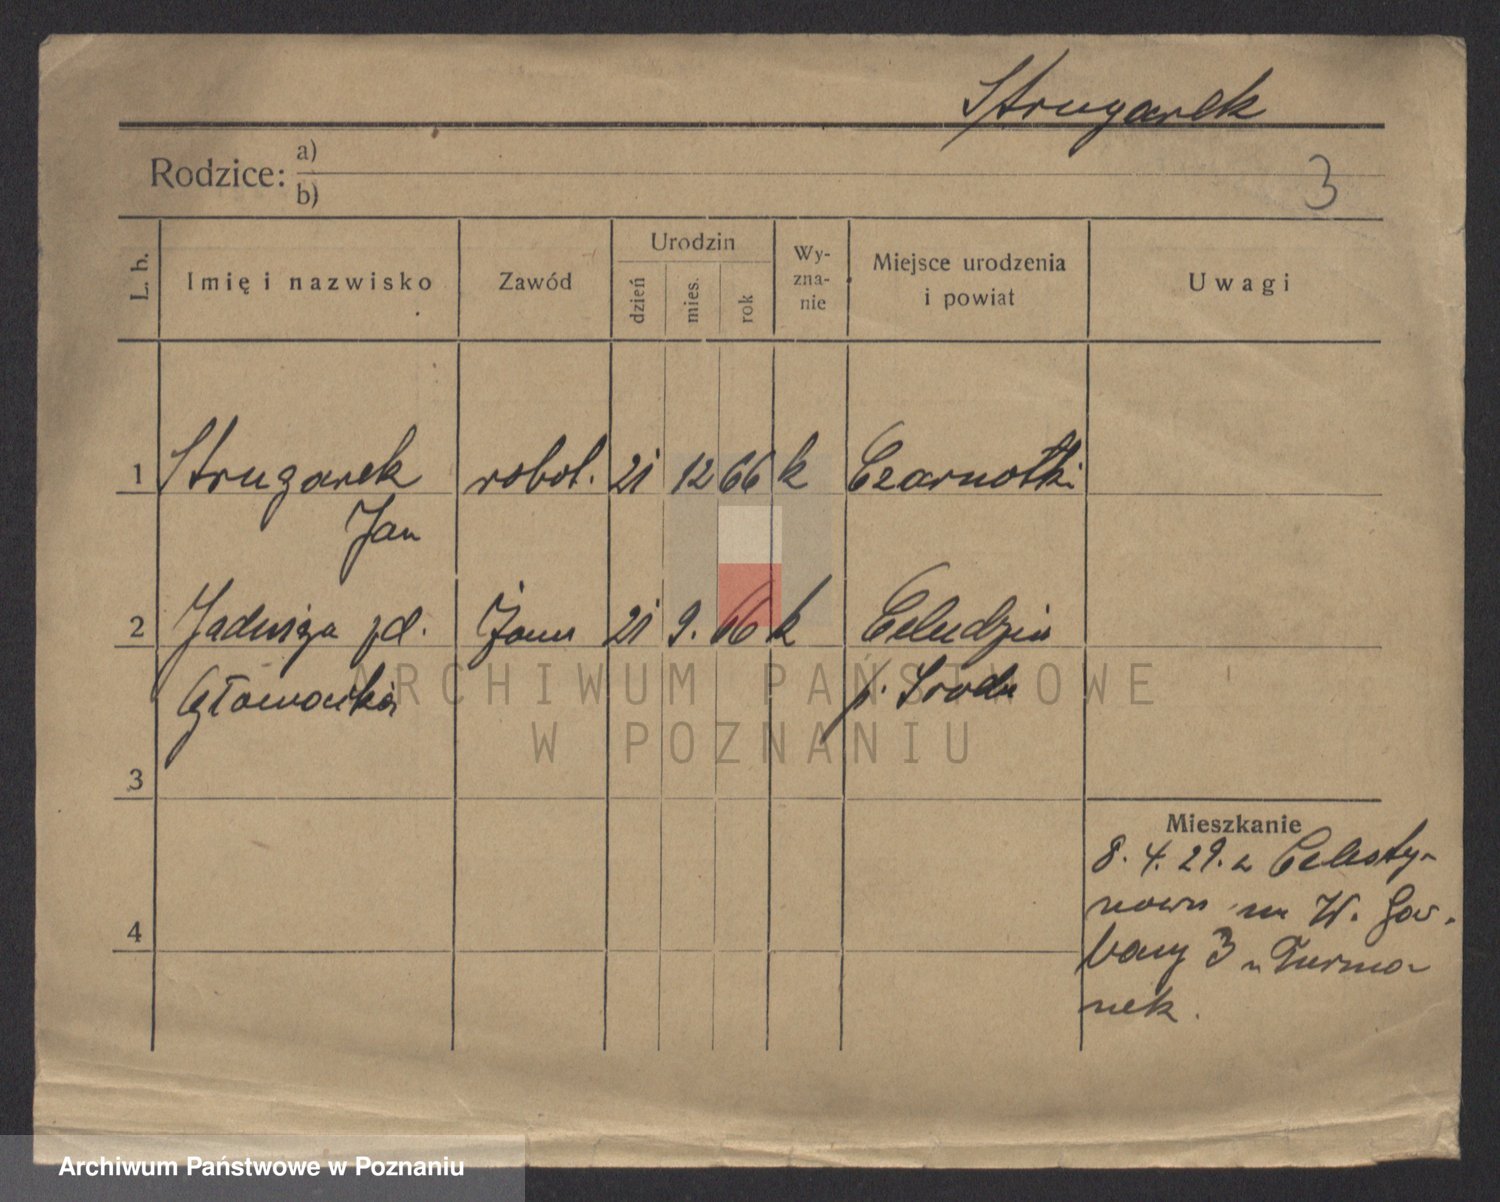 Strugarek
Rodzice: a)
b)
3
L. b. Imię i nazwisko Zawód Urodzin dzień mies. rok Wy-zna-nie Miejsce urodzenia i powiat Uwagi
1 Strugarek robot. 21 12 66 k Czarnotki
Jan
2 Jadwiga zd. żona 21 9. 66 k
p. Środa
3
Mieszkanie
8. 4. 29. z Celesty-
nowa na W. Gar-
4
bary 3 u Furma-
nek.
ARCHIWUM PAŃSTWOWE
W POZNANIU
Archiwum Państwowe w Poznaniu